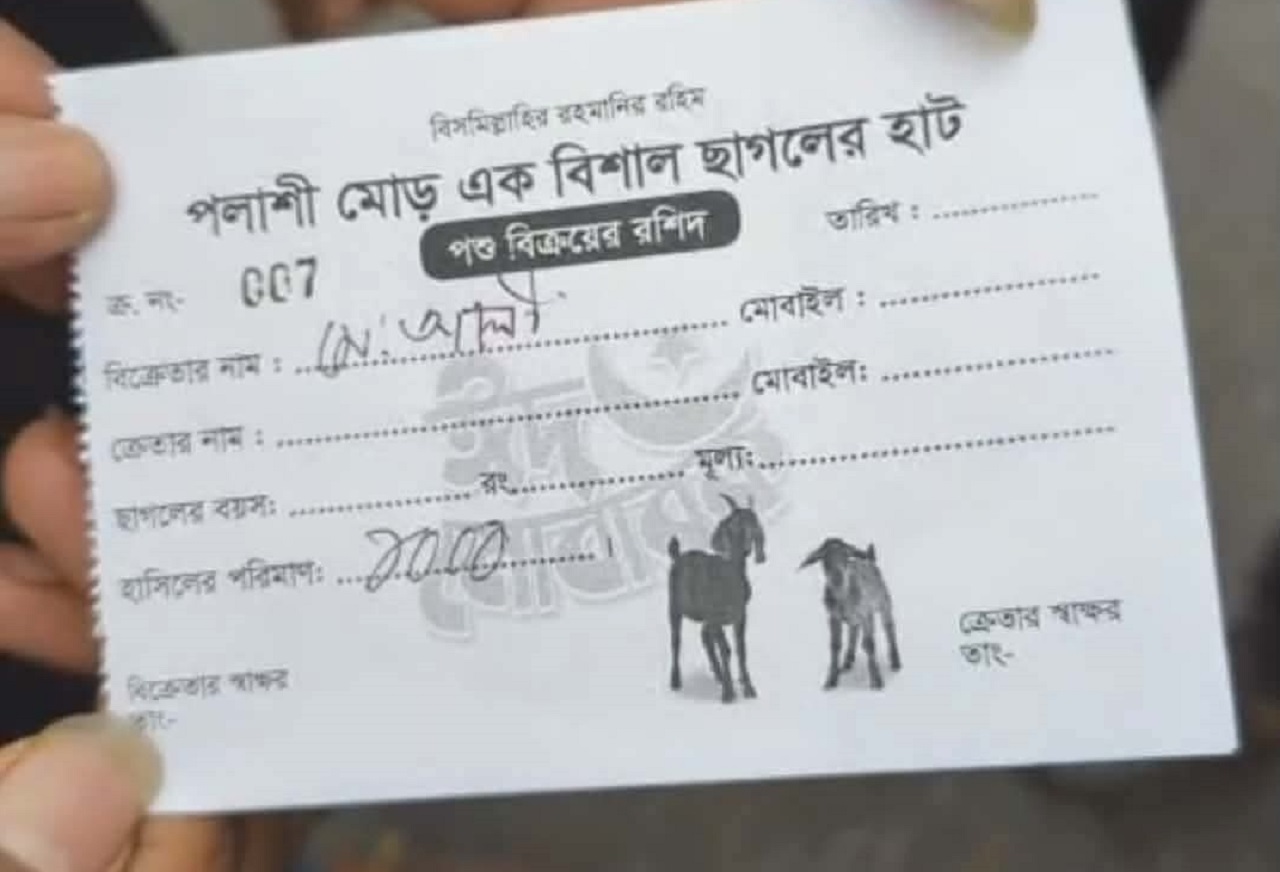 বিসমিল্লাহির রহমানির রহিম
পলাশী মোড় এক বিশাল ছাগলের হাট
পশু বিক্রয়ের রশিদ
তারিখ : ..............................
ক্র. নং- 007
বিক্রেতার নাম : মো: আলী .............................. মোবাইল : ..............................
ক্রেতার নাম : .............................. মোবাইল: ..............................
ছাগলের বয়স: .................... রং.................... মূল্য:..............................
হাসিলের পরিমাণ: ..............................।
ঈদ মোবারক
বিক্রেতার স্বাক্ষর
তাং-
ক্রেতার স্বাক্ষর
তাং-